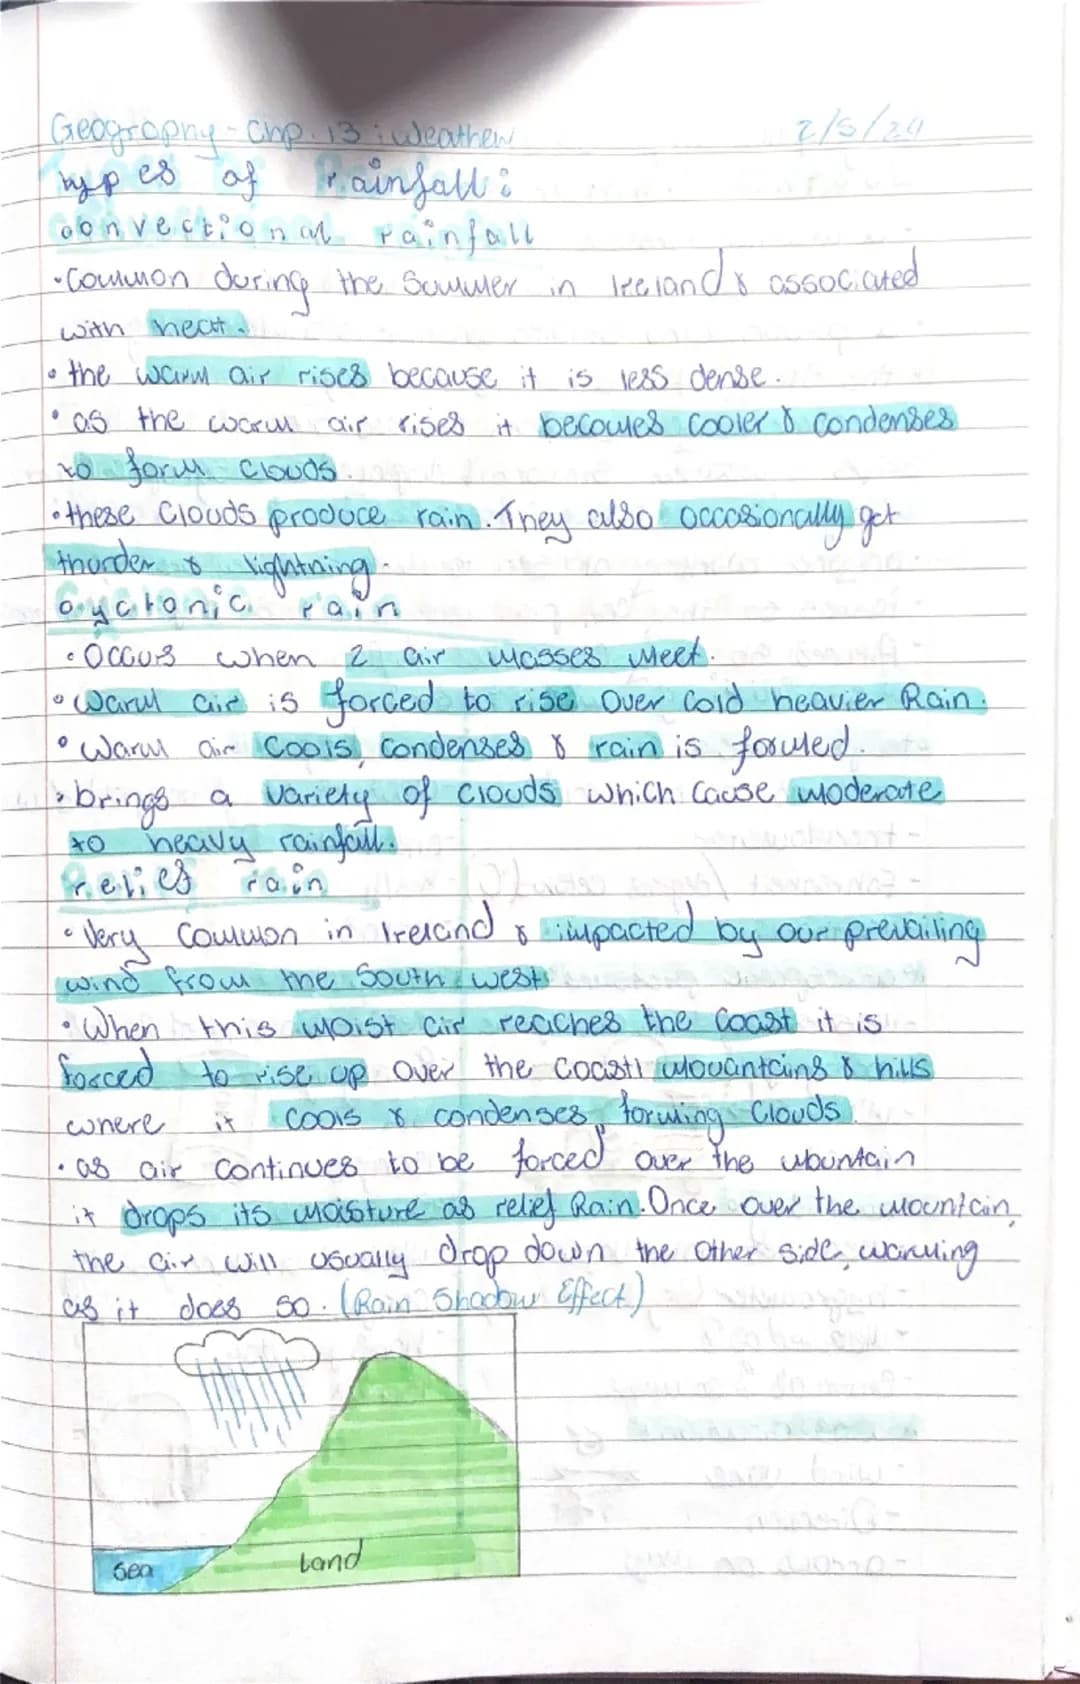 Geography - Chp. 13 : Weather 2/5/24
Types of Rainfall :
convectional rainfall
• Common during the Summer in Ireland & associated
with heat.
• the warm air rises because it is less dense.
• as the warm air rises it becomes cooler & condenses
to form clouds.
• these clouds produce rain. They also occasionally get
thunder & lightning.
Cyclonic rain
• Occurs when 2 air masses meet.
• Warm air is forced to rise over cold heavier Rain.
• Warm air cools, condenses & rain is formed.
• brings a variety of clouds which cause moderate
to heavy rainfall.
Relief rain
• Very common in Ireland & impacted by our prevailing
wind from the South west
• When this moist air reaches the coast it is
forced to rise up over the coastl mouantains & hills
where it cools & condenses, forming clouds.
• as air continues to be forced over the mountain
it drops its moisture as relief Rain. Once over the mountain,
the air will usually drop down the other side, warming
as it does so. (Rain Shadow Effect)
Sea Land